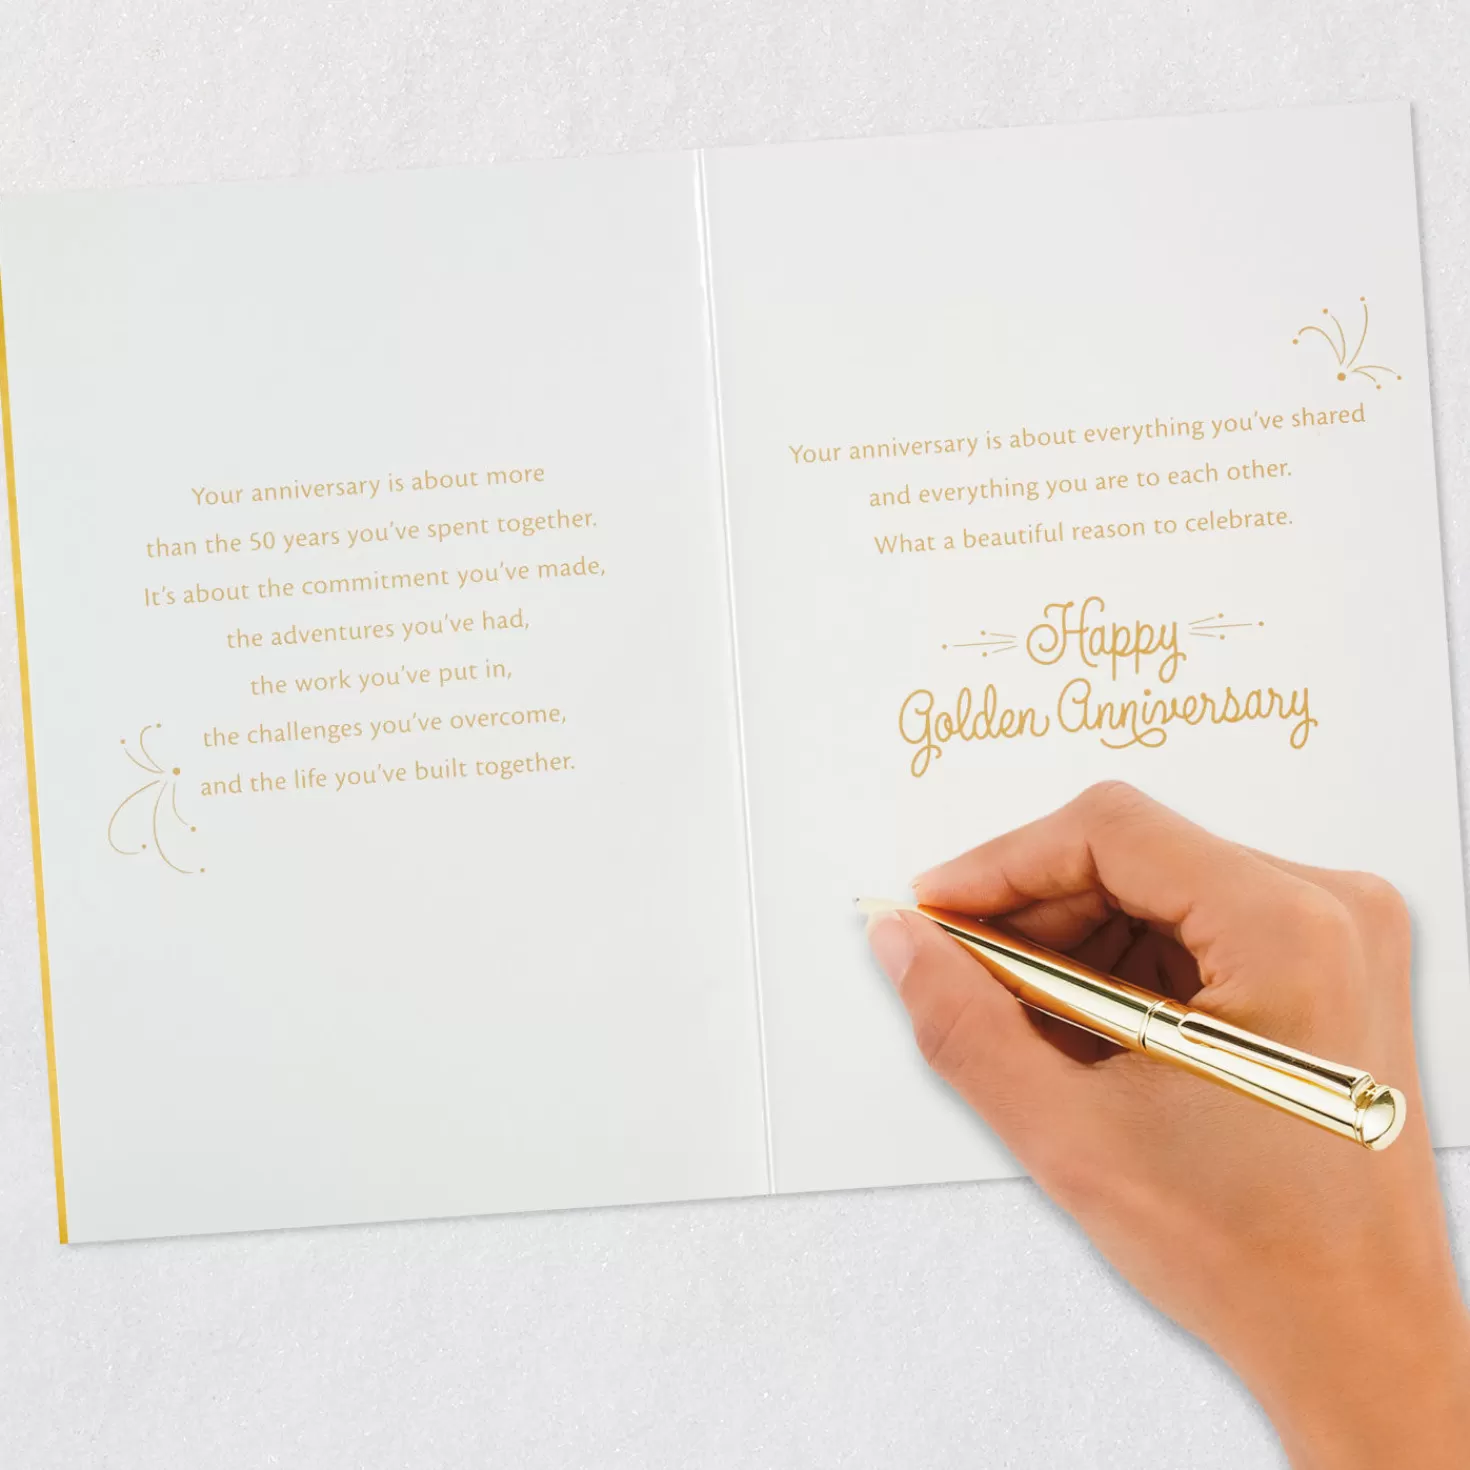 Your anniversary is about more
than the 50 years you've spent together.
It's about the commitment you've made,
the adventures you've had,
the work you've put in,
the challenges you've overcome,
and the life you've built together.
Your anniversary is about everything you've shared
and everything you are to each other.
What a beautiful reason to celebrate.
Happy
Golden Anniversary